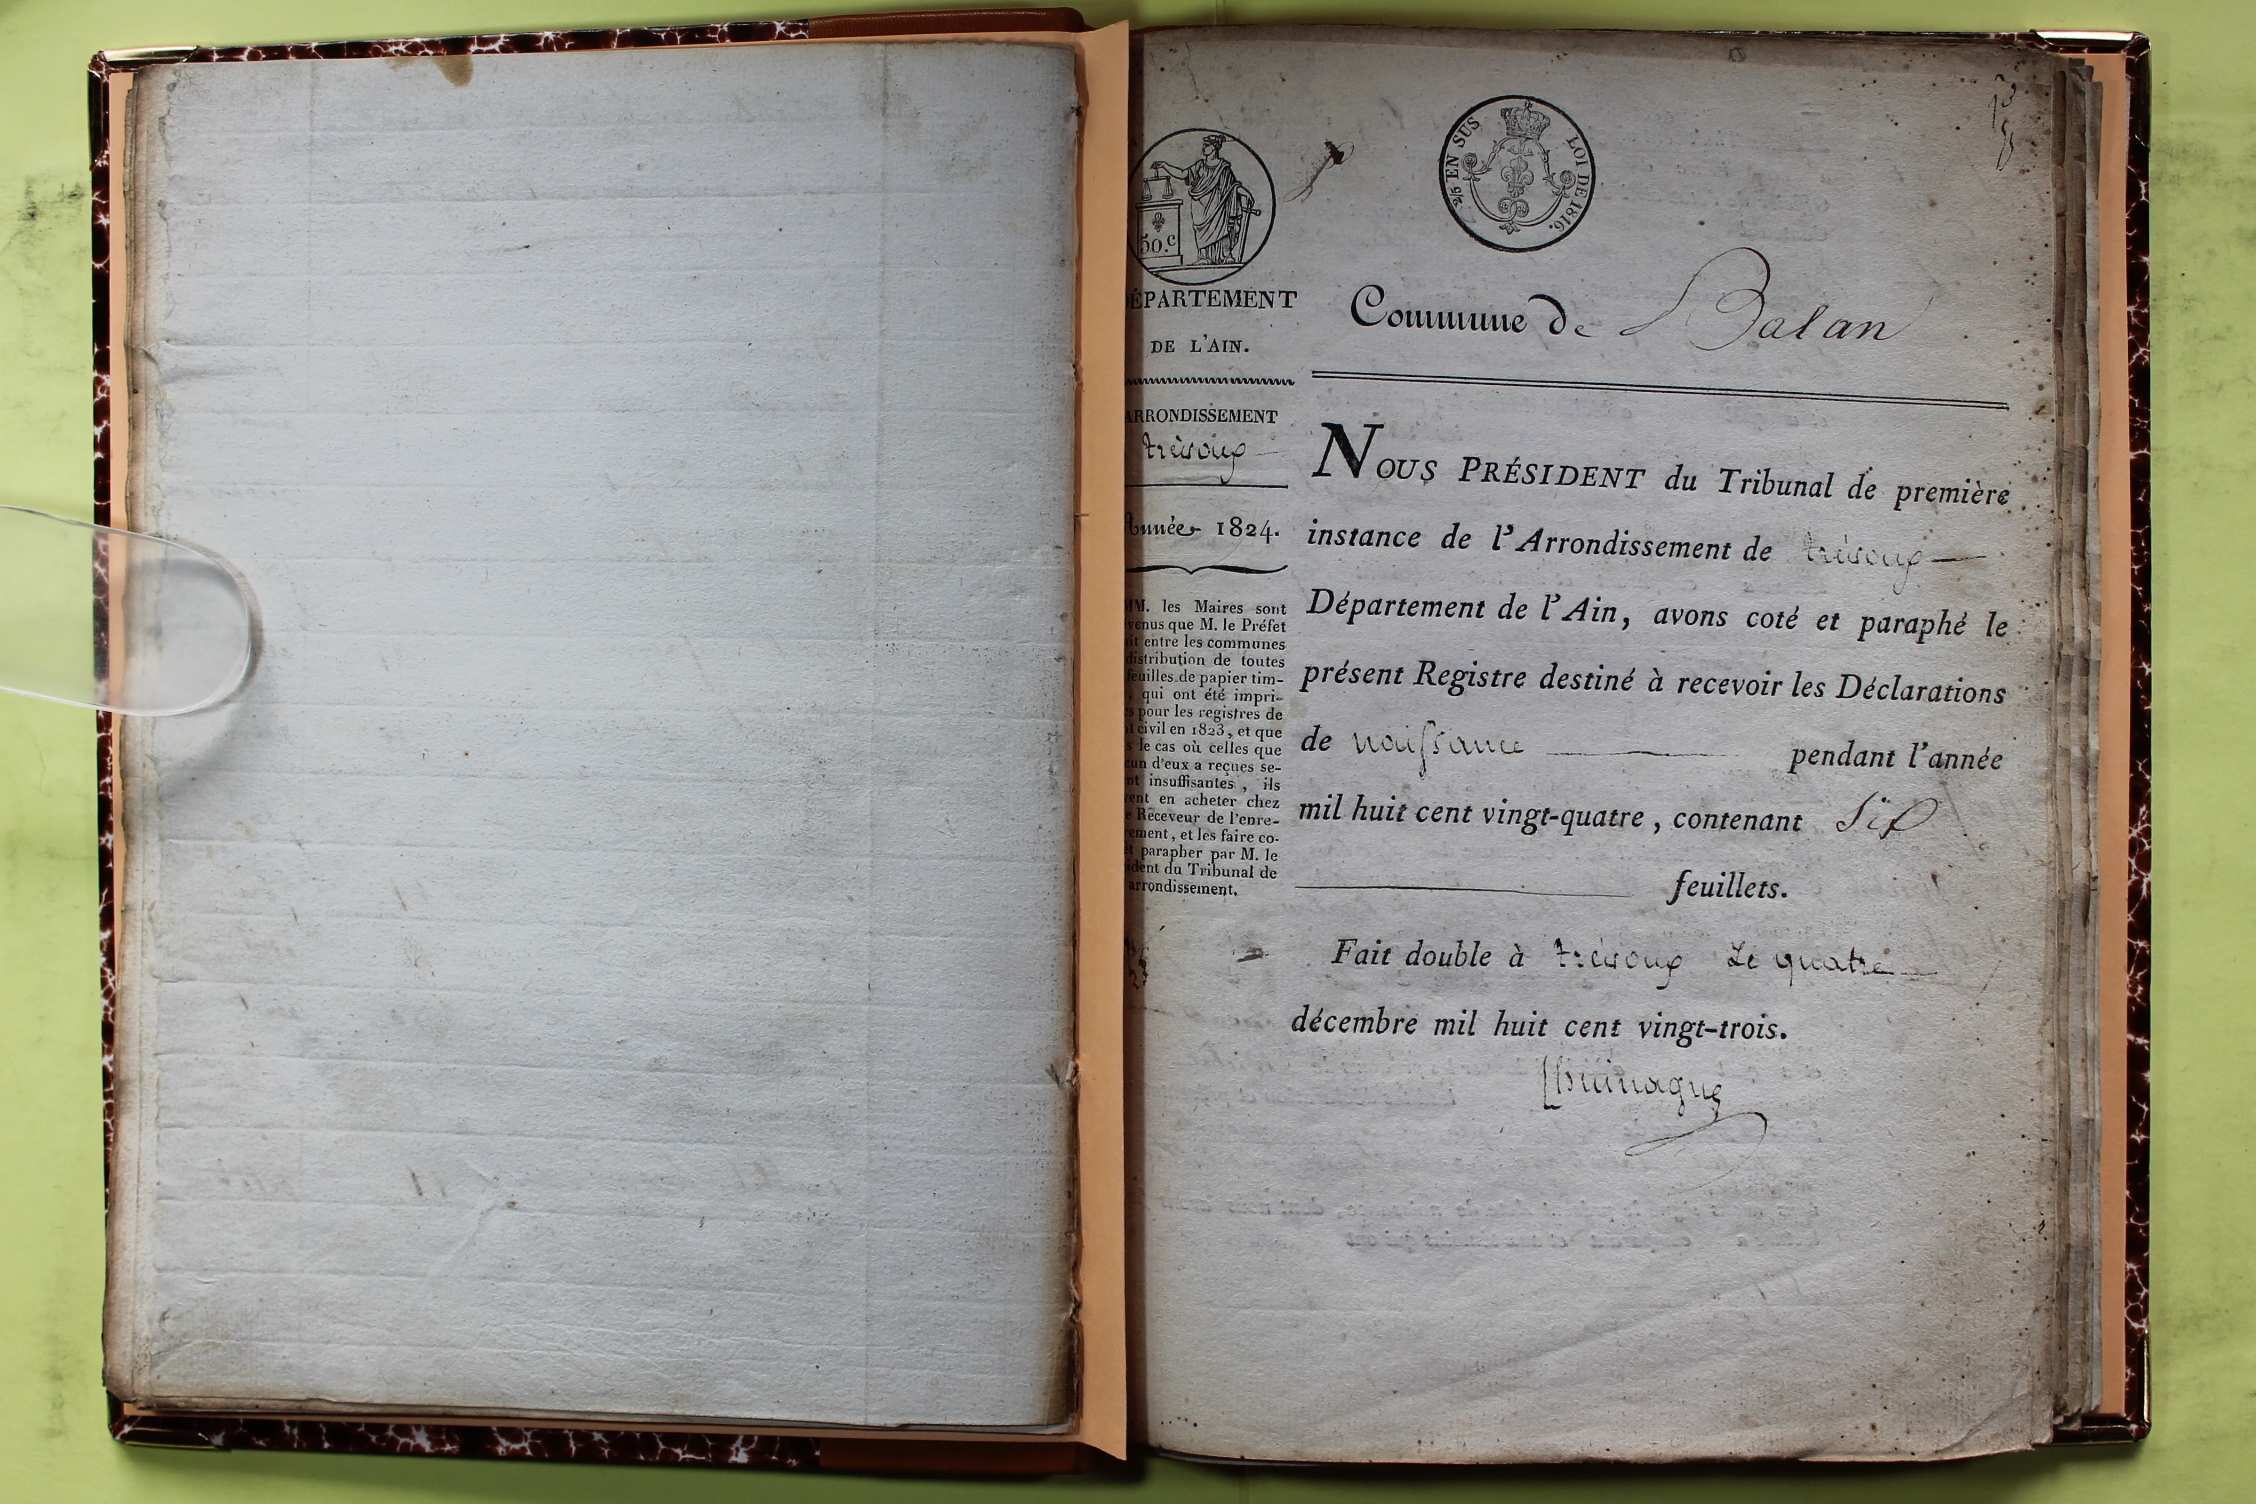 2/5 EN SUS LOI DE 1816.
50.c
DÉPARTEMENT
DE L'AIN.
ARRONDISSEMENT
trévoux
Année 1824.
MM. les Maires sont
venus que M. le Préfet
ait entre les communes
distribution de toutes
feuilles de papier tim-
, qui ont été impri-
s pour les registres de
t civil en 1823, et que
s le cas où celles que
cun d'eux a reçues se-
nt insuffisantes, ils
vent en acheter chez
e Receveur de l'enre-
rement, et les faire co-
et parapher par M. le
ident du Tribunal de
arrondissement.
Commune de Balan
NOUS PRÉSIDENT du Tribunal de première
instance de l'Arrondissement de trévoux
Département de l'Ain, avons coté et paraphé le
présent Registre destiné à recevoir les Déclarations
de naissance pendant l'année
mil huit cent vingt-quatre, contenant Six
feuillets.
Fait double à trévoux Le quatre
décembre mil huit cent vingt-trois.